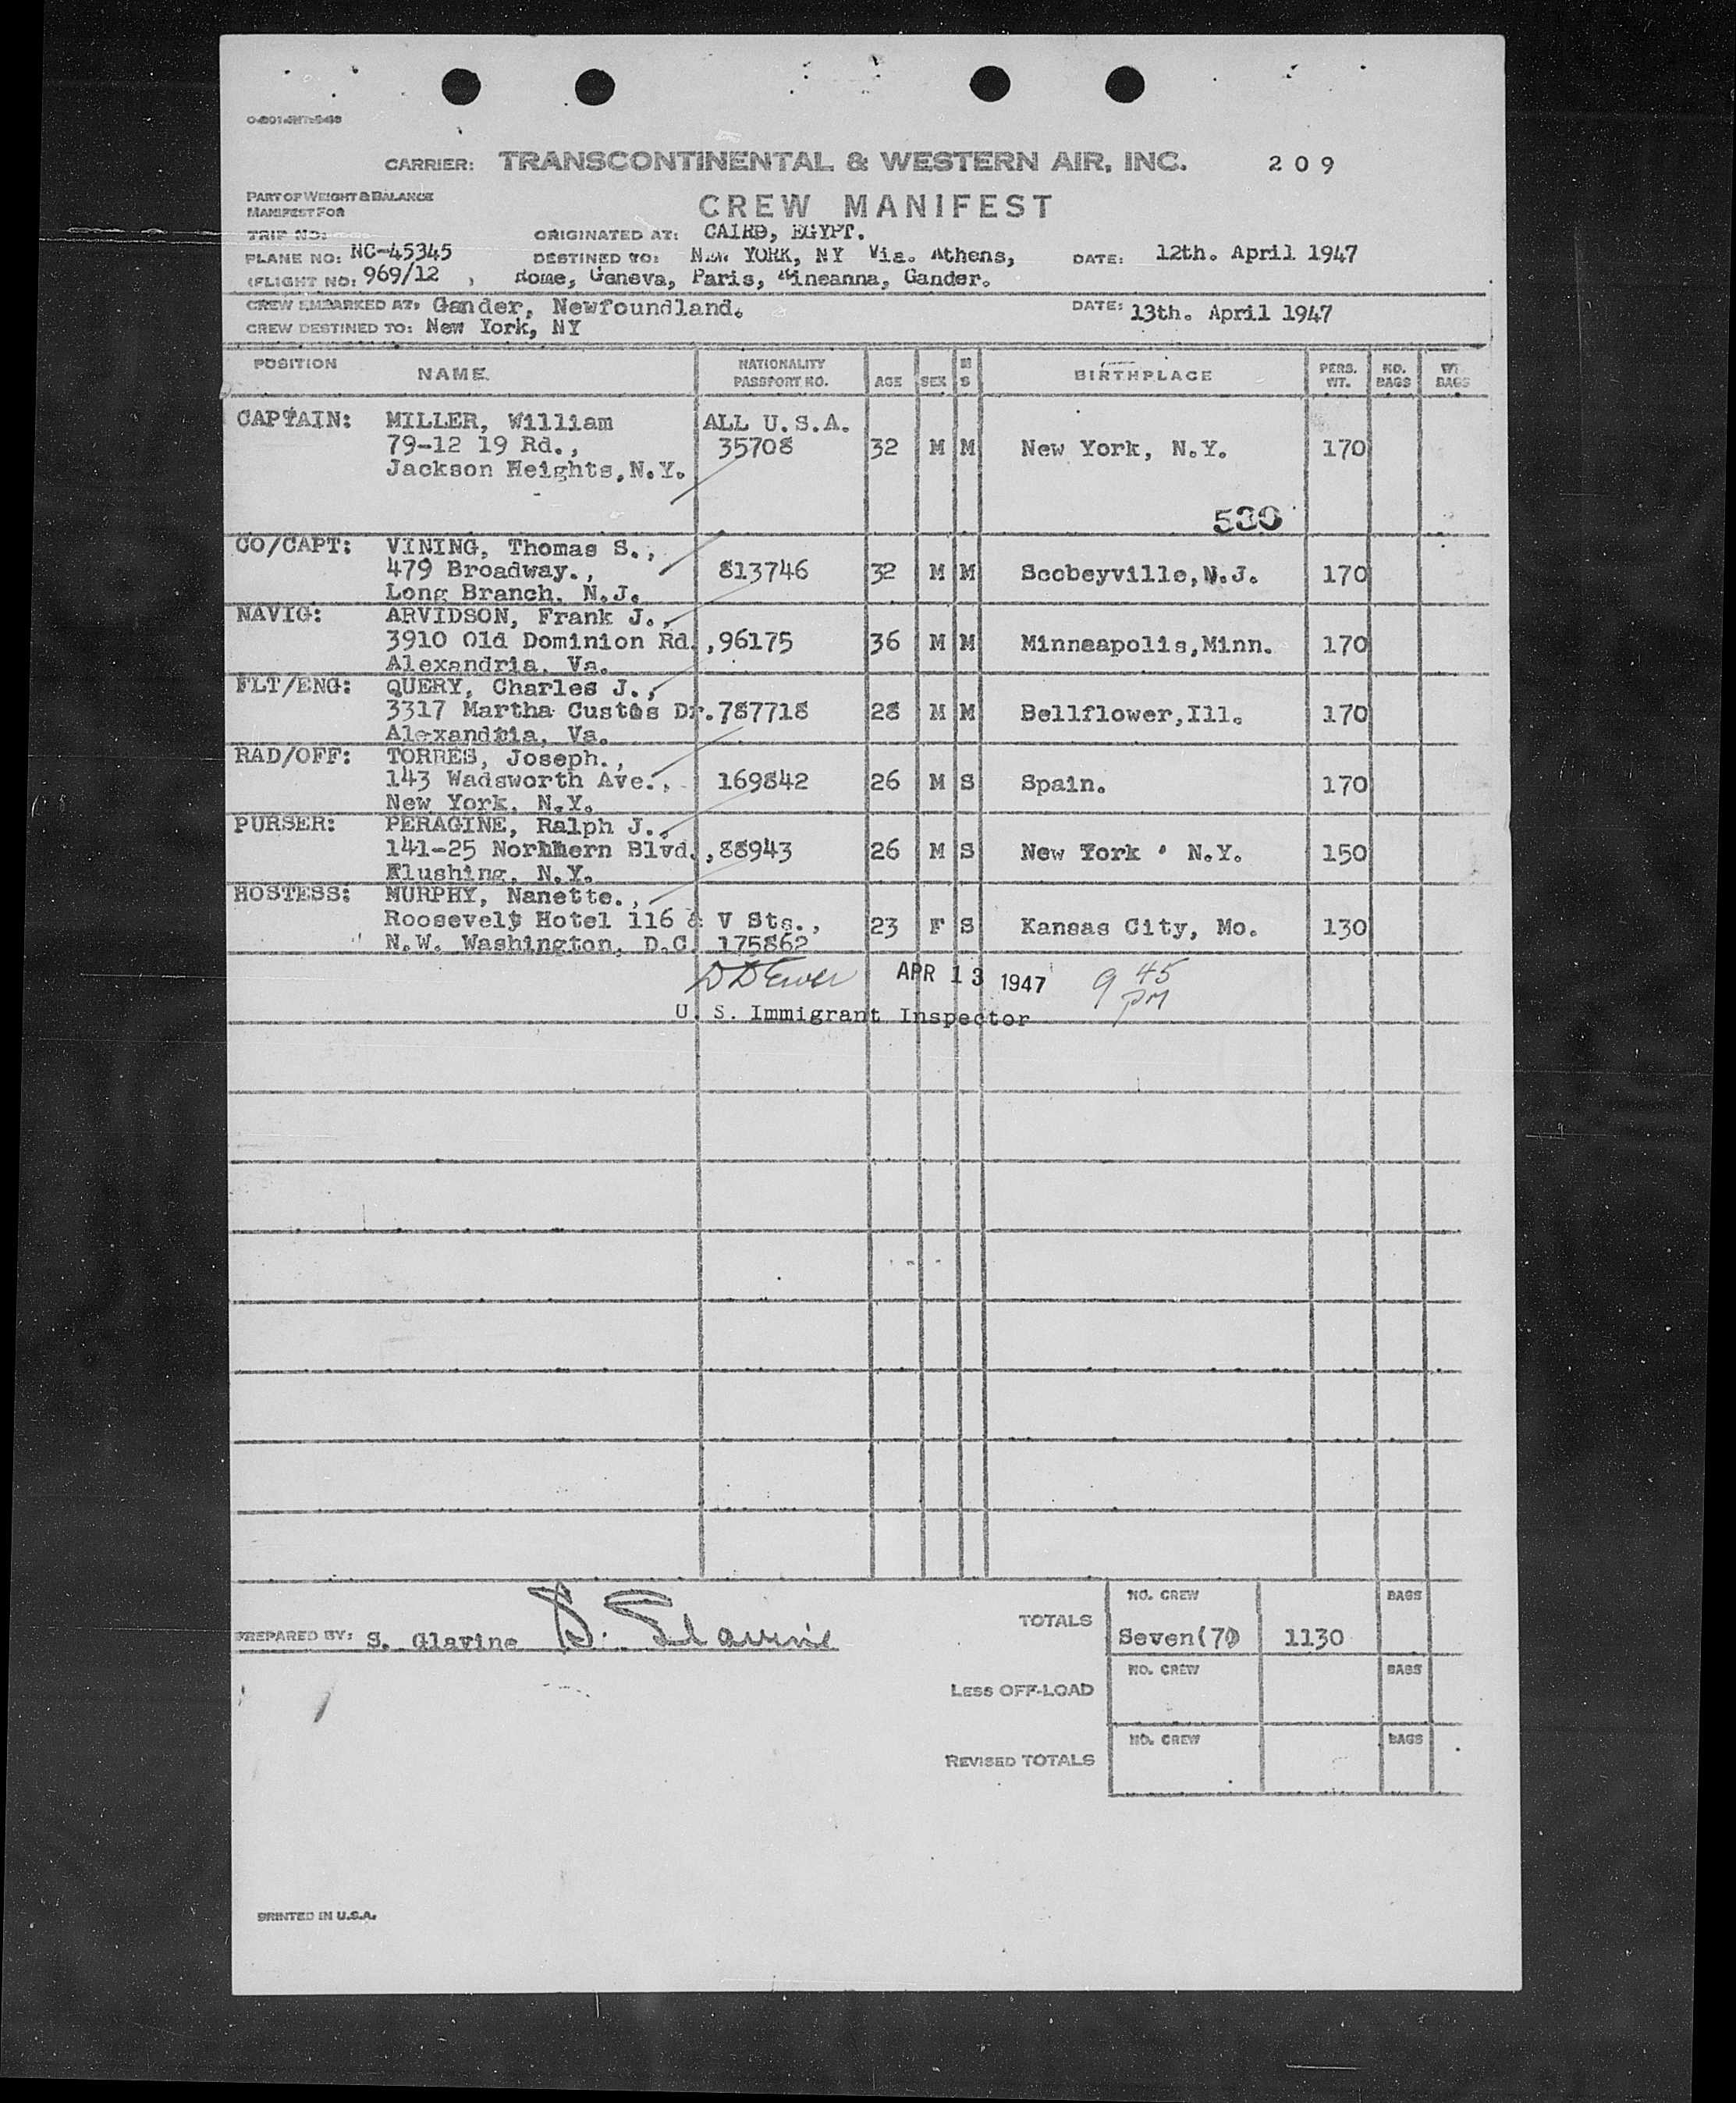 CARRIER: TRANSCONTINENTAL & WESTERN AIR, INC. 209
PART OF WEIGHT & BALANCE
MANIFEST FOR
CREW MANIFEST
TRIP NO: ORIGINATED AT: CAIRO, EGYPT.
PLANE NO: NC-45345 DESTINED TO: NEW YORK, NY Via. Athens, DATE: 12th. April 1947
(FLIGHT NO: 969/12 , Rome, Geneva, Paris, Gander.
CREW EMBARKED AT: Gander, Newfoundland. DATE: 13th. April 1947
CREW DESTINED TO: New York, NY
POSITION NAME NATIONALITY PASSPORT NO. AGE SEX M S BIRTHPLACE PERS. WT. NO. BAGS WT BAGS
CAPTAIN: MILLER, William ALL U.S.A.
79-12 19 Rd., 35708 32 M M New York, N.Y. 170
Jackson Heights, N.Y.
530
CO/CAPT: VINING, Thomas S.,
479 Broadway., 813746 32 M M Scobeyville, N.J. 170
Long Branch, N.J.
NAVIG: ARVIDSON, Frank J.,
3910 Old Dominion Rd., 96175 36 M M Minneapolis, Minn. 170
Alexandria, Va.
FLT/ENG: QUERY, Charles J.,
3317 Martha Custis Dr. 787718 28 M M Bellflower, Ill. 170
Alexandria, Va.
RAD/OFF: TORRES, Joseph.,
143 Wadsworth Ave., 169842 26 M S Spain. 170
New York, N.Y.
PURSER: PERAGINE, Ralph J.,
141-25 Northern Blvd., 88943 26 M S New York, N.Y. 150
Flushing, N.Y.
HOSTESS: MURPHY, Nanette.,
Roosevelt Hotel 116 & V Sts., 23 F S Kansas City, Mo. 130
N.W. Washington, D.C. 175862
APR 13 1947 9 45 pm
U. S. Immigrant Inspector
PREPARED BY: S. Glavine S. Glavine
TOTALS NO. CREW Seven(7) 1130 BAGS
LESS OFF-LOAD NO. CREW BAGS
REVISED TOTALS NO. CREW BAGS
PRINTED IN U.S.A.